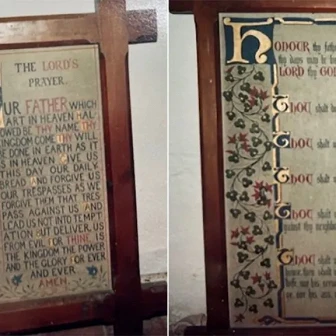 THE LORD'S
PRAYER.
UR FATHER WHICH
ART IN HEAVEN HAL
OWED BE THY NAME THY
KINGDOM COME THY WILL
BE DONE IN EARTH AS IT
IS IN HEAVEN GIVE US
THIS DAY OUR DAILY
BREAD AND FORGIVE US
OUR TRESPASSES AS WE
FORGIVE THEM THAT TRES
PASS AGAINST US AND
LEAD US NOT INTO TEMPT
ATION BUT DELIVER US
FROM EVIL FOR THINE IS
THE KINGDOM THE POWER
AND THE GLORY FOR EVER
AND EVER
AMEN
HONOUR thy fath
thy days may be
LORD thy GOD
Thou shalt
Thou shalt
Thou shalt
Thou shalt
Thou shalt